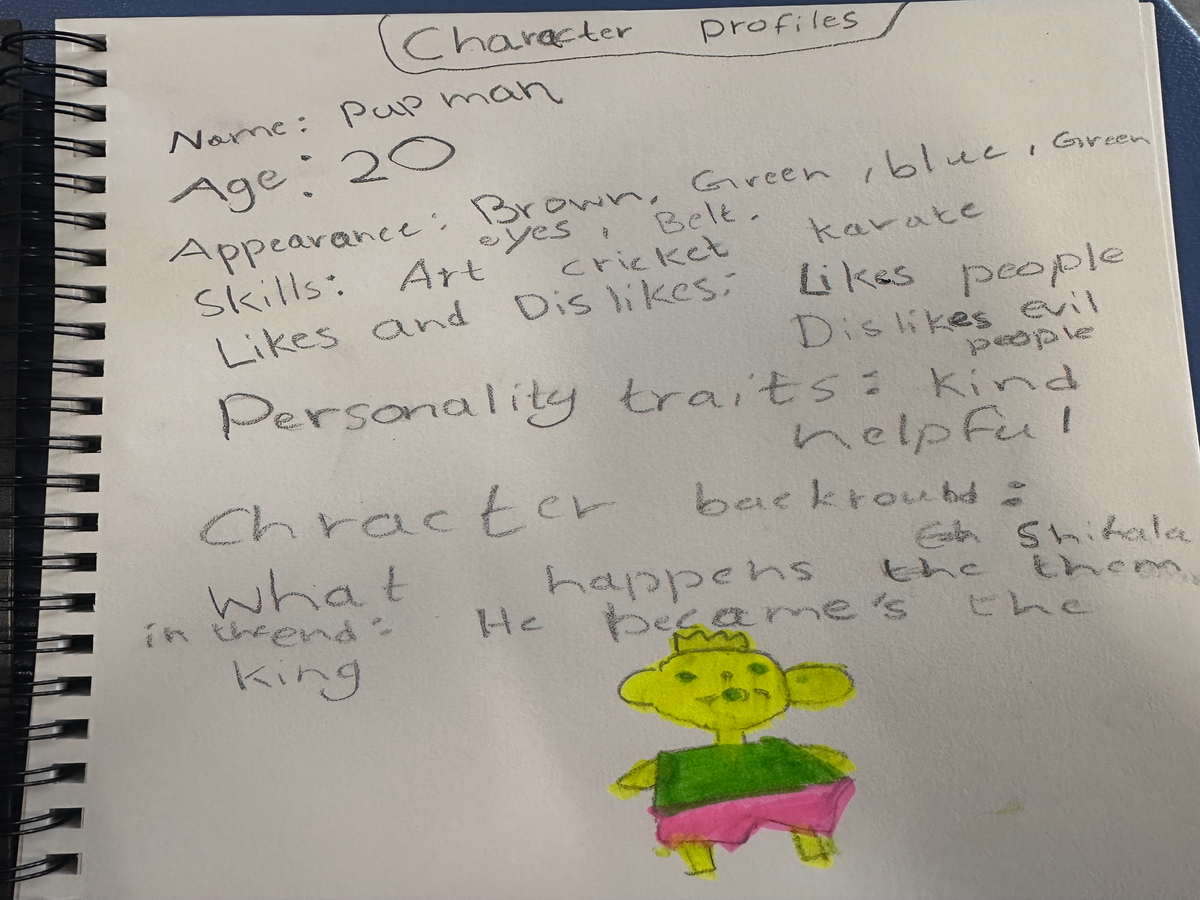 Character profiles
Name: Pup man
Age: 20
Appearance: Brown, Green, blue, Green
eyes, Belt.
Skills: Art cricket karate
Likes and Dislikes: Likes people
Dislikes evil
people
Personality traits: kind
helpful
Chracter backroubd:
Shihala
What happens the them
in the end: He became's the
king